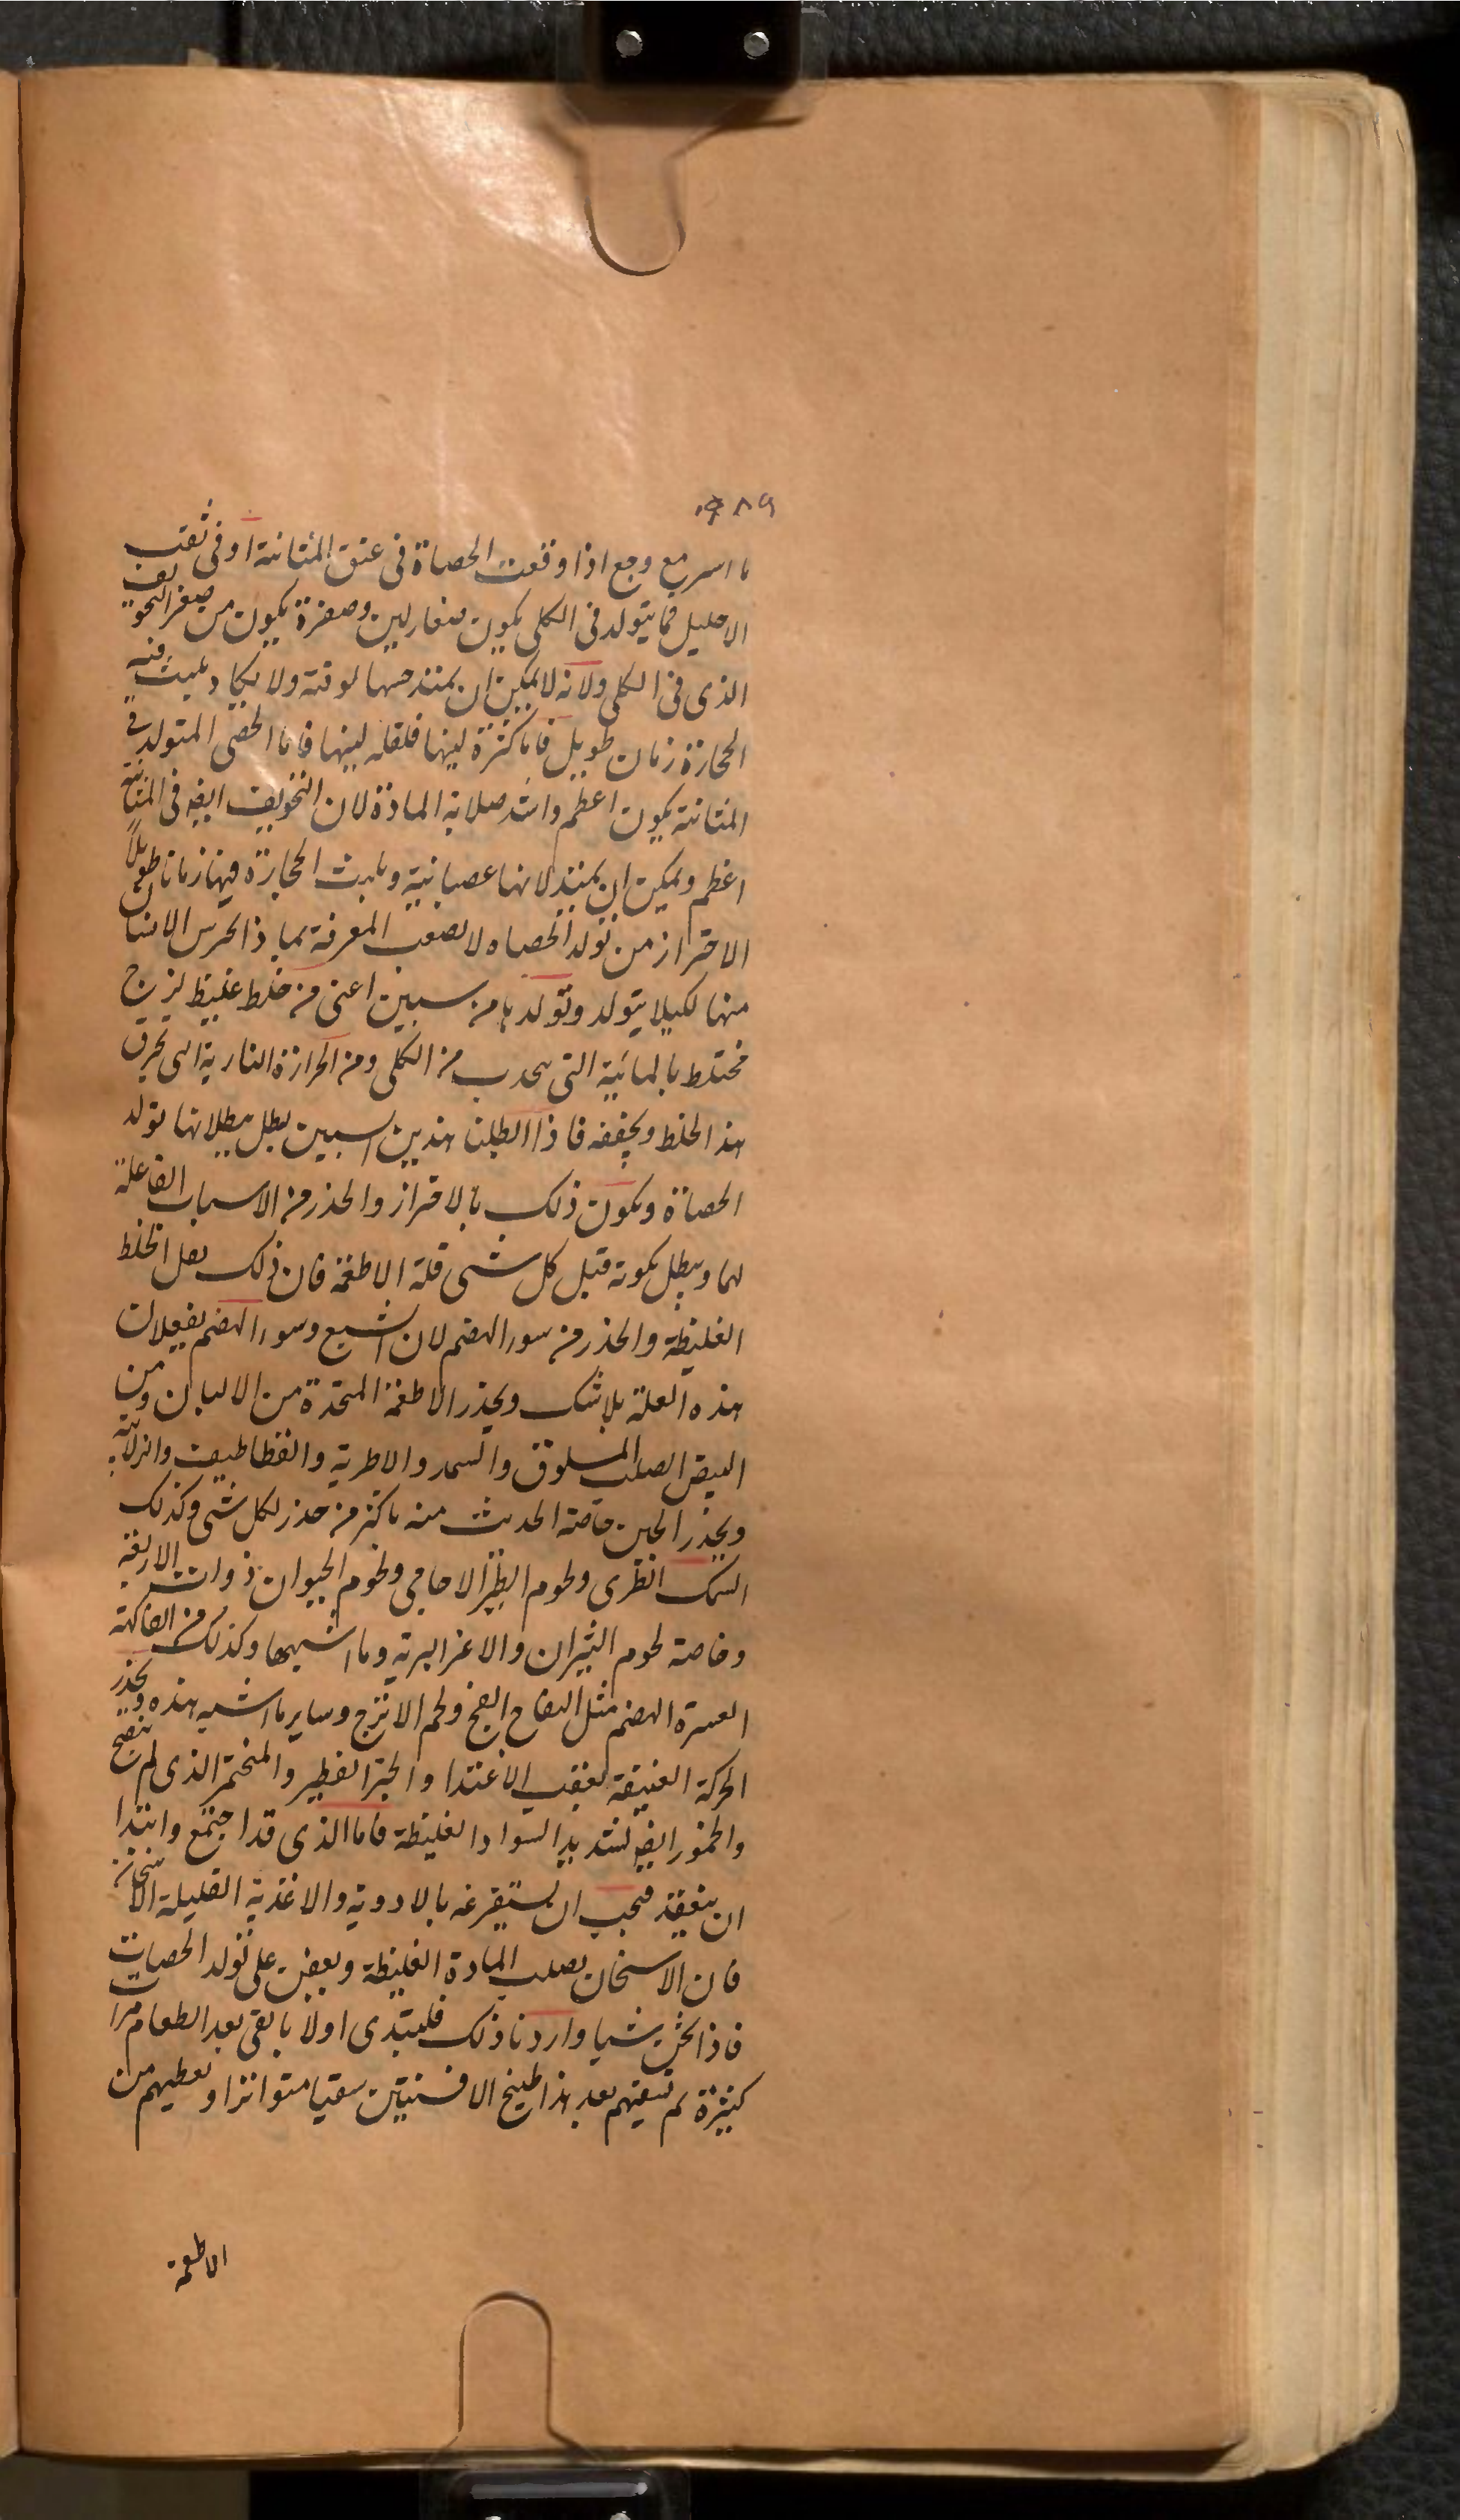 ٩٨٩
ما اسر مع وجع اذا وقعت الحصاة فى عنق المثانة او فى ثقب
الاحليل فما يتولد فى الكلى يكون صغار لين وصغرة يكون من صغر التجويف
الذى فى الكلى ولانه لا يمكن ان يمتد حسها لوقته ولا يكاد يلبث فيه
الحجارة زمان طويل فاما كثرة لينها فلقلة لبثها فاما الحصى المتولد فى
المثانة يكون اعظم واشد صلابة المادة لان التجويف ايضه فى المثانة
اعظم ويمكن ان يمتد لانها عصبانية ويلبث الحجارة فيها زمانا طويلاً
الاحتراز من تولد الحصاه لا يصعب المعرفة بما ذا يحرس الانسان
منها لكيلا يتولد وتولدها من سببين اعنى من خلط غليظ لزج
مختلط بالمائية التى من الكلى ومن الحرارة النارية التى يحرق
هذا الخلط ويجففه فاذا ابطلنا هذين السببين بطل ببطلانها تولد
الحصاة ويكون ذلك بالاحتراز والحذر من الاسباب الفاعلة
لهما ويبطل بكونه قبل كل شى قلة الاطعمة فان ذلك يقل الخلط
الغليظة والحذر من سور الهضم لان الشبع وسور الهضم يفعلان
هذه العلة بلا شك ويحذر الاطعمة المتخذة من الالبان ومن
البيض الصلب المسلوق والسمد والاطرية والقطاطيف والزلابية
ويحذر الجبن خاصة الحديث منه باكثر من حذر لكل شى وكذلك
السمك الطرى ولحوم الطير الاجامى ولحوم الحيوان ذوات الاربعة
وخاصة لحوم الثيران والاعز البرية وما اشبهها وكذلك من الفاكهة
العسرة الهضم مثل التفاح الفج ولحم الاترج وساير ما اشبه هذه ويحذر
الحركة العنيفة بعقب الاغتذا والخبز الفطير والمختمر الذى لم ينضج
والخمور ايضه لشديد السواد الغليظة فاما الذى قد اجتمع وابتدا
ان ينعقد فيجب ان يستفرغه بالادوية والاغذية القليلة الاسخان
فان الاسخان يصلب المادة الغليظة ويعين على تولد الحصاة
فاذا شيا واردنا ذلك فليبتدى اولا بالقى بعد الطعام مرات
كثيرة ثم تسقيهم بعد هذا طبيخ الافسنتين سقيا متواترا ويعطيهم من
الاطعمة